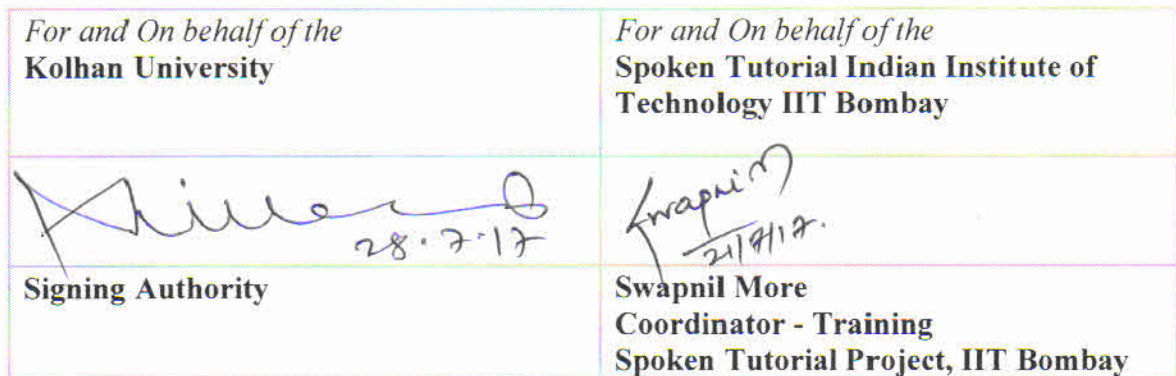 For and On behalf of the
Kolhan University
For and On behalf of the
Spoken Tutorial Indian Institute of
Technology IIT Bombay
28.7.17
Swapnil
21/7/17.
Signing Authority
Swapnil More
Coordinator - Training
Spoken Tutorial Project, IIT Bombay